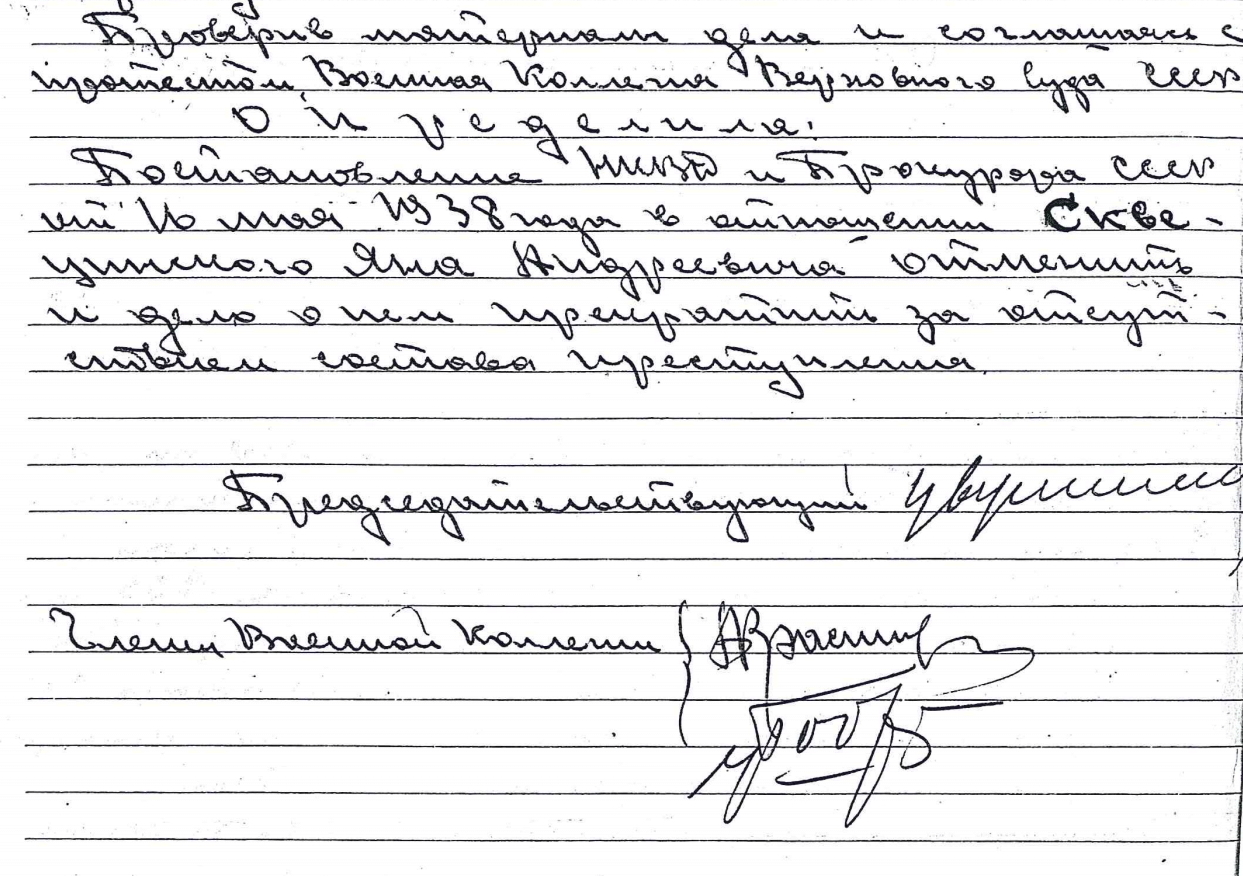 Проверив материалы дела и соглашаясь с
протестом, Военная Коллегия Верховного Суда СССР
О п р е д е л и л а:
Постановление НКВД и Прокурора СССР
от 16 мая 1938 года в отношении Скве-
цинского Яна Андреевича отменить
и дело о нем прекратить за отсут-
ствием состава преступления.
Председательствующий
Члены Военной Коллегии